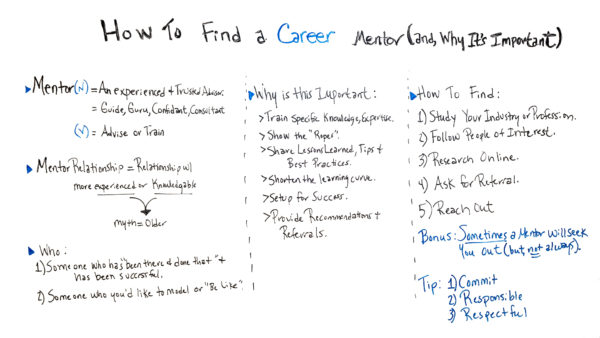 How To Find a Career Mentor (and, Why It's Important)
Mentor (N) = An experienced + Trusted Advisor.
= Guide, Guru, Confidant, Consultant
(V) = Advise or Train
Mentor Relationship = Relationship w/
more experienced or Knowledgable
myth = Older
Who:
1) Someone who has "been there & done that" +
has been successful.
2) Someone who you'd like to model or "Be Like".
Why is this Important:
> Train Specific Knowledge, Expertise.
> Show the "Ropes".
> Share Lessons Learned, Tips &
Best Practices.
> Shorten the learning curve.
> Setup for Success.
> Provide Recommendations +
Referrals.
How To Find:
1) Study Your Industry or Profession.
2) Follow People of Interest.
3) Research Online.
4) Ask for Referral.
5) Reach Out
Bonus: Sometimes a Mentor Will seek
You out (but not always).
Tip: 1) Commit
2) Responsible
3) Respectful